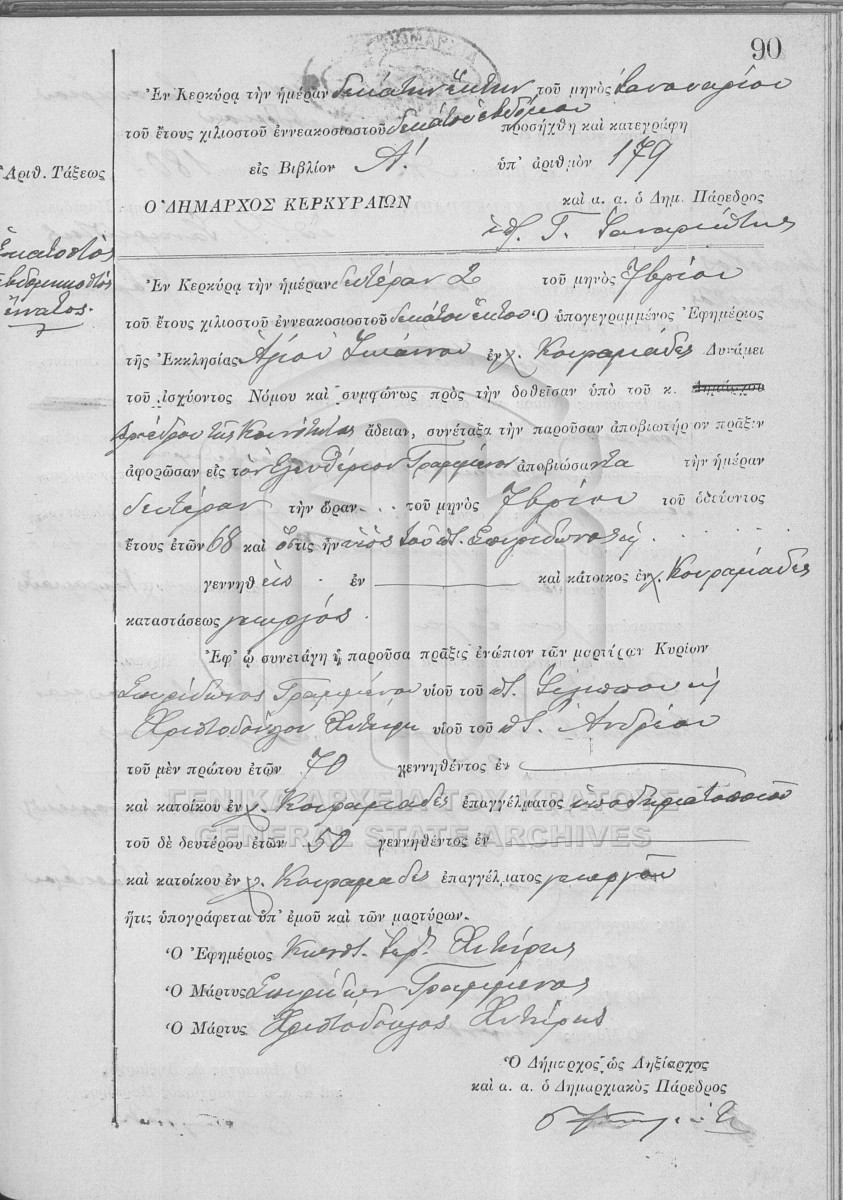 90
Ἐν Κερκύρᾳ τὴν ἡμέραν δεκάτην ἕκτην τοῦ μηνὸς Ἰανουαρίου
τοῦ ἔτους χιλιοστοῦ ἐννεακοσιοστοῦ δεκάτου ἑβδόμου προσήχθη καὶ κατεγράφη
Ἀριθ. Τάξεως
εἰς Βιβλίον Α! ὑπ' ἀριθμὸν 179
Ὁ ΔΗΜΑΡΧΟΣ ΚΕΡΚΥΡΑΙΩΝ καὶ α. α. ὁ Δημ. Πάρεδρος
Γ.
Ἑκατοστὸς
ἑβδομηκοστὸς
ἔνατος.
Ἐν Κερκύρᾳ τὴν ἡμέραν δευτέραν 2 τοῦ μηνὸς 7βρίου
τοῦ ἔτους χιλιοστοῦ ἐννεακοσιοστοῦ δεκάτου ἕκτου Ὁ ὑπογεγραμμένος Ἐφημέριος
τῆς Ἐκκλησίας Ἁγίου Ἰωάννου ἐν χ. Κουραμάδες Δυνάμει
τοῦ ἰσχύοντος Νόμου καὶ συμφώνως πρὸς τὴν δοθεῖσαν ὑπὸ τοῦ κ. Δημάρχου
Προέδρου τῆς Κοινότητας ἄδειαν, συνέταξα τὴν παροῦσαν ἀποβιωτήριον πρᾶξιν
ἀφορῶσαν εἰς τὸν Ἐλευθέριον Γραμμένον ἀποβιώσαντα τὴν ἡμέραν
δευτέραν τὴν ὥραν τοῦ μηνὸς 7βρίου τοῦ ὁδεύοντος
ἔτους ἐτῶν 68 καὶ ὅστις ἦν υἱὸς τοῦ ποτ. Σπυρίδωνος
γεννηθεὶς ἐν καὶ κάτοικος ἐν χ. Κουραμάδες
καταστάσεως γεωργός.
Ἐφ' ᾧ συνετάγη ἡ παροῦσα πρᾶξις ἐνώπιον τῶν μαρτύρων Κυρίων
Σπυρίδωνος Γραμμένου υἱοῦ τοῦ ποτ. Φιλίππου
Χριστοδούλου Χυτήρη υἱοῦ τοῦ ποτ. Ἀνδρέου
τοῦ μὲν πρώτου ἐτῶν 70 γεννηθέντος ἐν
καὶ κατοίκου ἐν χ. Κουραμάδες ἐπαγγέλματος ὑποδηματοποιοῦ
ΓΕΝΙΚΑ ΑΡΧΕΙΑ ΤΟΥ ΚΡΑΤΟΥΣ
GENERAL STATE ARCHIVES
τοῦ δὲ δευτέρου ἐτῶν 50 γεννηθέντος ἐν
καὶ κατοίκου ἐν χ. Κουραμάδες ἐπαγγέλματος γεωργοῦ
ἥτις ὑπογράφεται ὑπ' ἐμοῦ καὶ τῶν μαρτύρων.
Ὁ Ἐφημέριος Χυτήρης
Ὁ Μάρτυς Σπυρίδων Γραμμένος
Ὁ Μάρτυς Χριστόδουλος Χυτήρης
Ὁ Δήμαρχος ὡς Ληξίαρχος
καὶ α. α. ὁ Δημαρχιακὸς Πάρεδρος